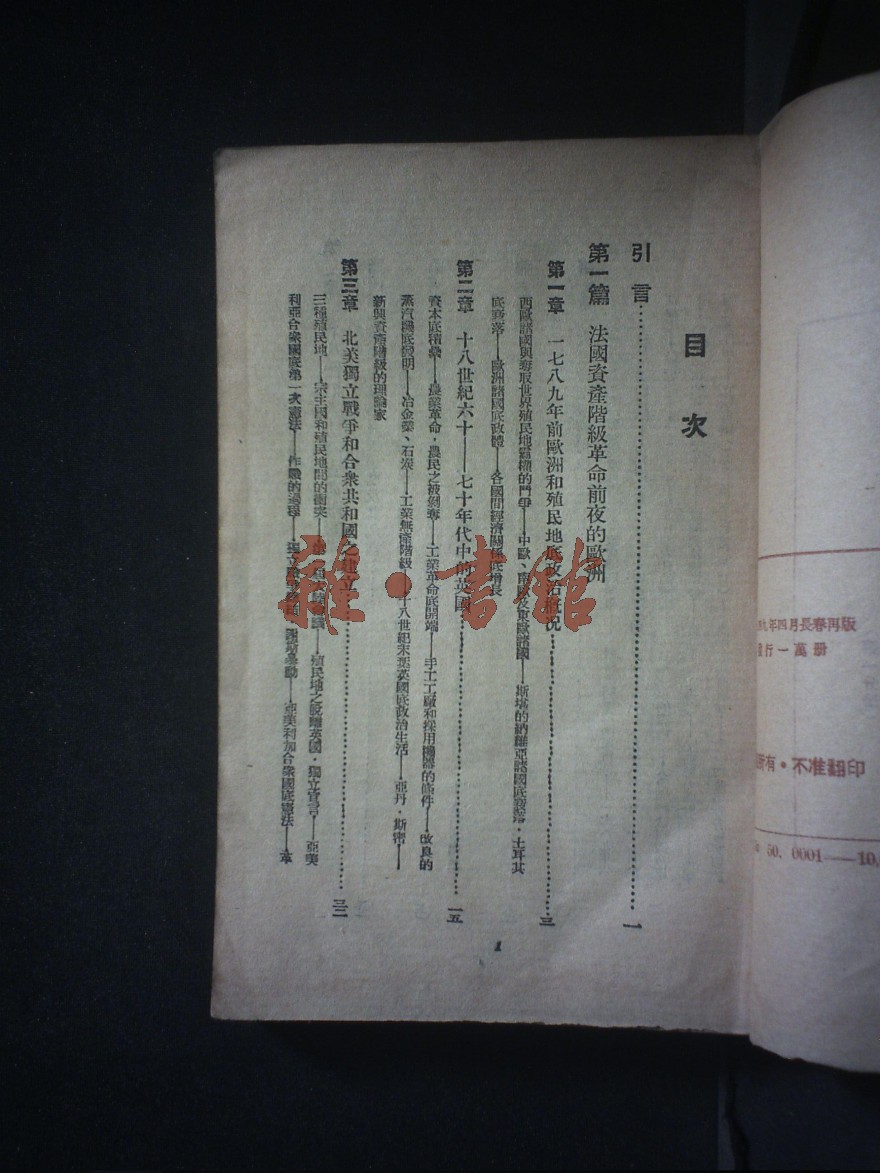 目 次
引言…………一
第一篇 法國資產階級革命前夜的歐洲
第一章 一七八九年前歐洲和殖民地底政治概况…………三
西歐諸國與奪取世界殖民地霸權的鬥爭——中歐、南歐及東歐諸國——斯堪的納維亞諸國底衰落・土耳其
底衰落——歐洲諸國底政體——各國間經濟關係底增長
第二章 十八世紀六十——七十年代中的英國…………一五
資本底積纍——農業革命，農民之被剝奪——工業革命底開端——手工工廠和採用機器的條件——改良的
蒸汽機底發明——冶金業、石炭——工業無產階級——十八世紀末葉英國底政治生活——亞丹・斯密——
新興資產階級的理論家
第三章 北美獨立戰爭和合衆共和國之建立…………三二
三種殖民地——宗主國和殖民地間的衝突——殖民地之脫離英國・獨立宣言——亞美
利亞合衆國底第一次憲法——作戰的過程——獨立戰爭——亞美利加合衆國底憲法——革
1
雜・書館
九年四月長春再版
行一萬册
有・不准翻印
50. 0001——10,